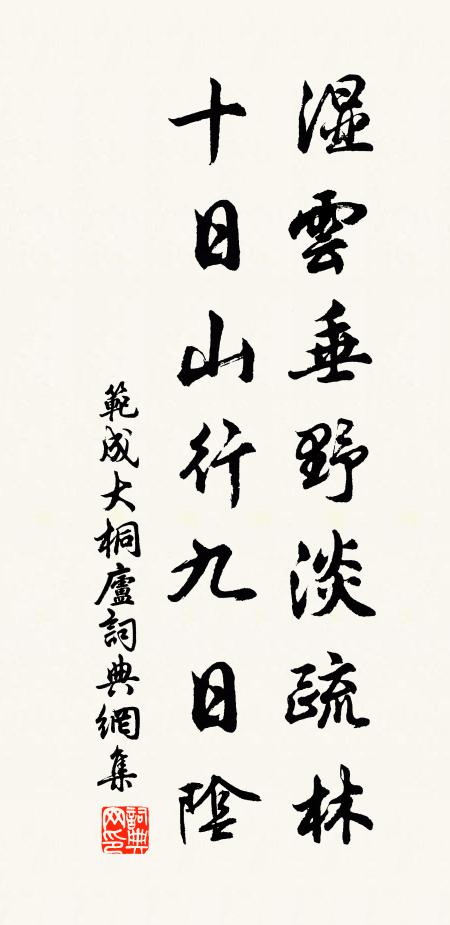 湿雲垂野淡疏林
十日山行九日陰
範成大桐廬詞典網集
詞典网印